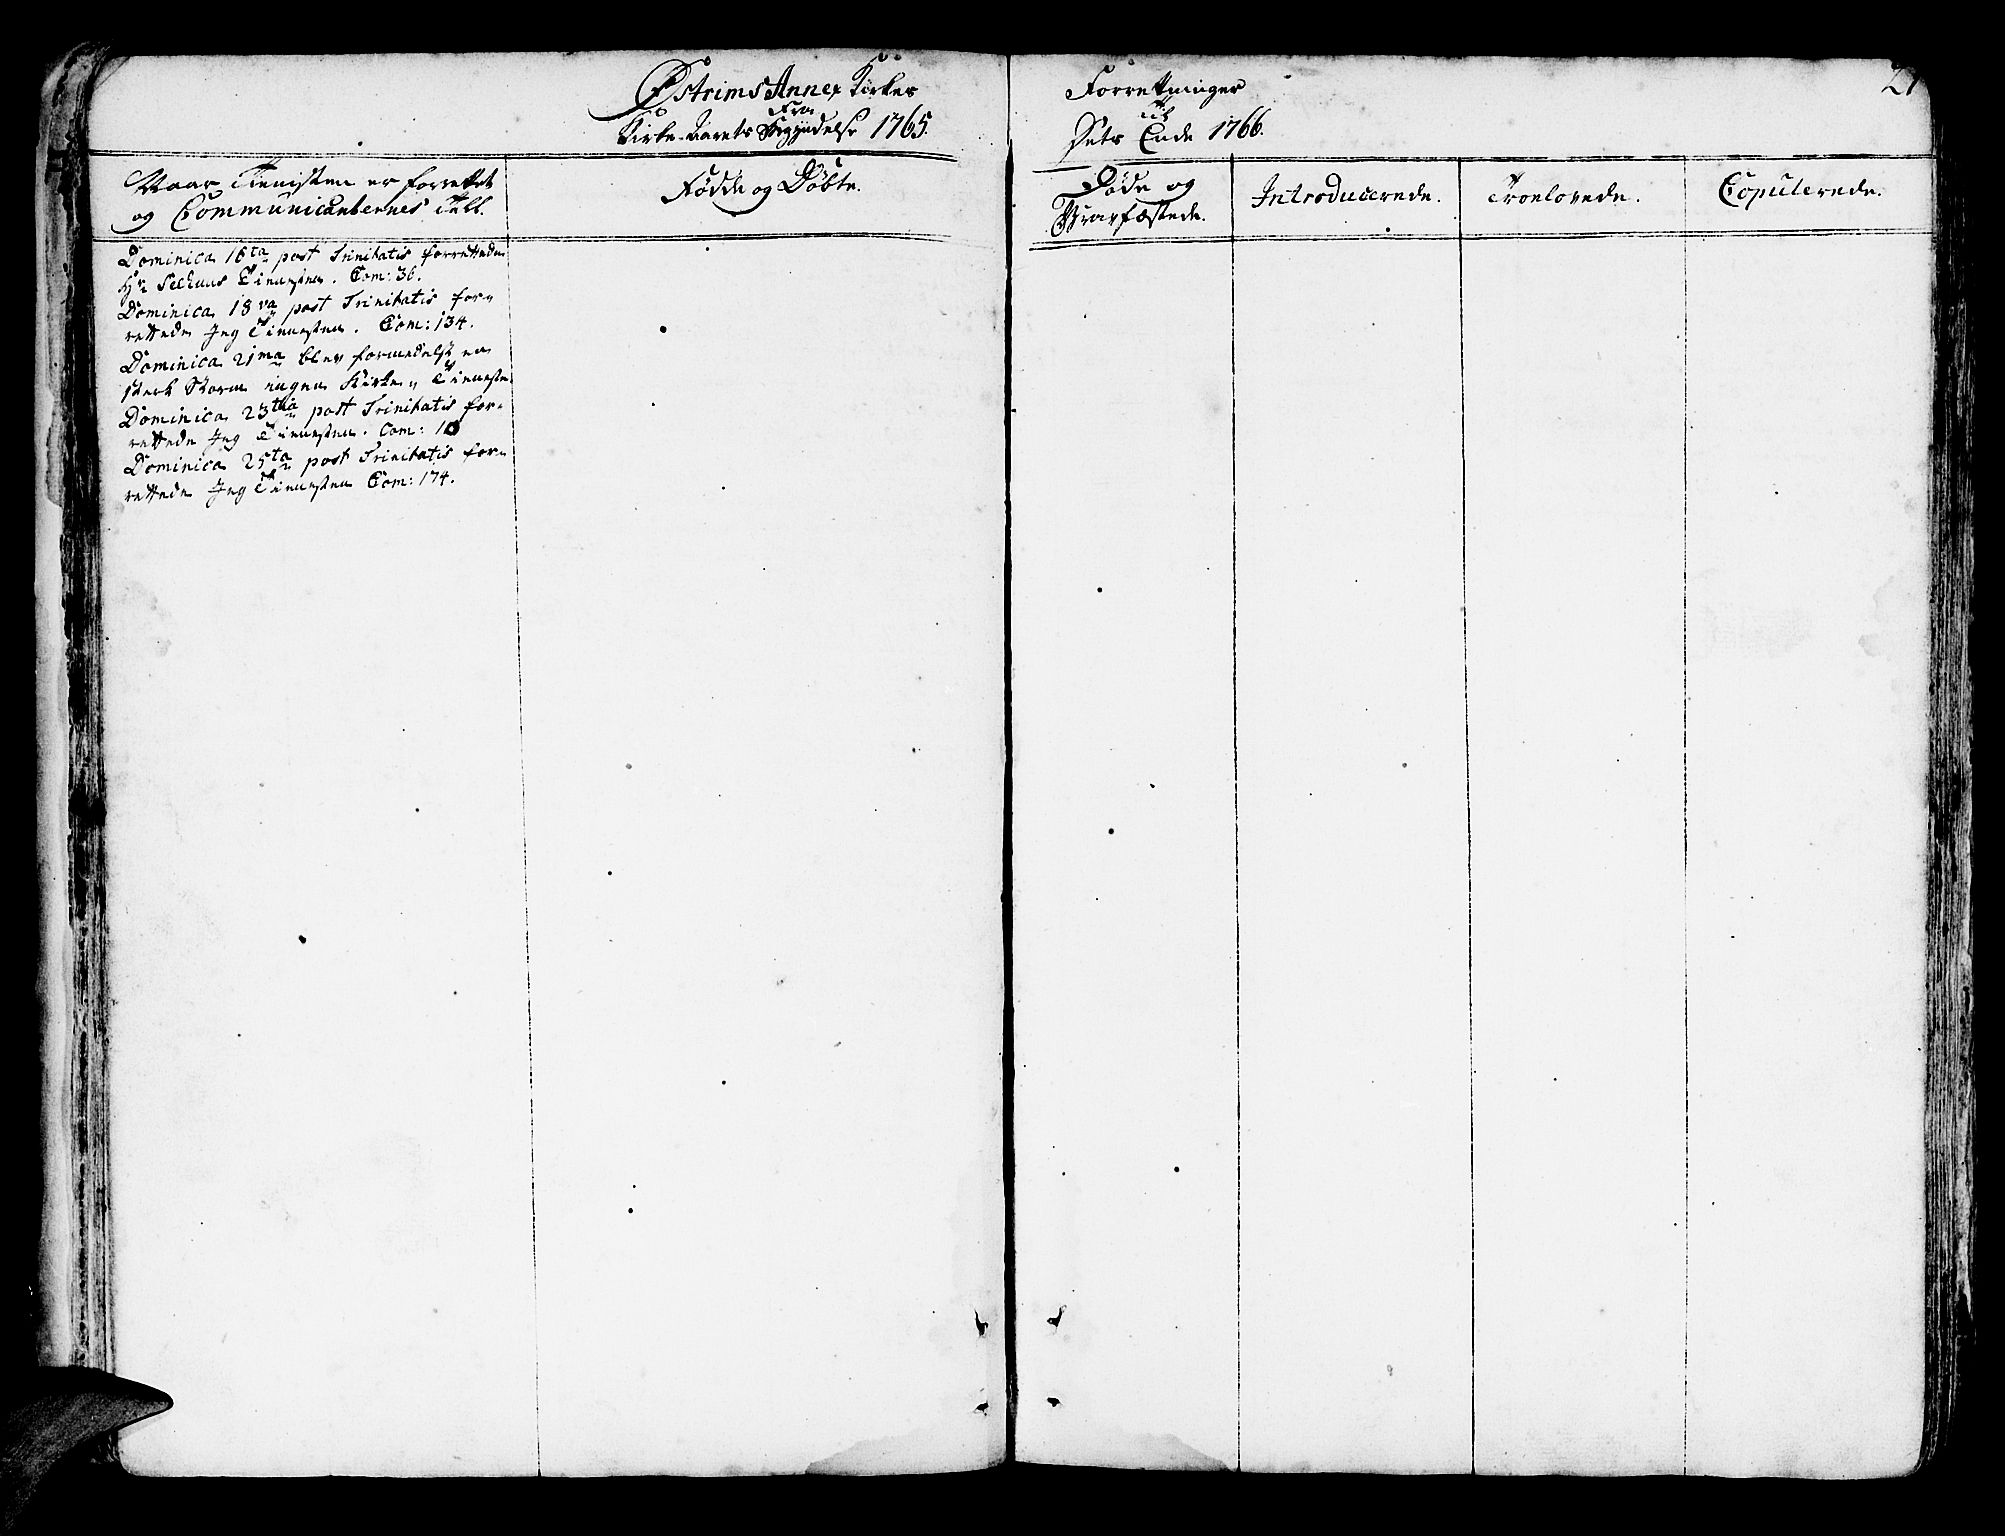 Østrims Annex Kirkes
Forretninger
27
Fra
Kirke-Aarets Begyndelse 1765.
til
Dets Ende 1766.
Naar Tienisten er forrettet
og Communicanternes Tall.
Fødde og Døbte.
Døde og
Gravfæstede.
Introducerede.
Troelovede.
Copulerede.
Dominica 16ta post Trinitatis forrettede
Hr. Tienesten. Com: 36.
Dominica 18va post Trinitatis for-
rettede Jeg Tienesten. Com: 134.
Dominica 21ma blev formedelst en
sterk Storm ingen Kirke-Tieneste.
Dominica 23tia post Trinitatis for-
rettede Jeg Tienesten. Com:
Dominica 25ta post Trinitatis for-
rettede Jeg Tienesten Com: 174.